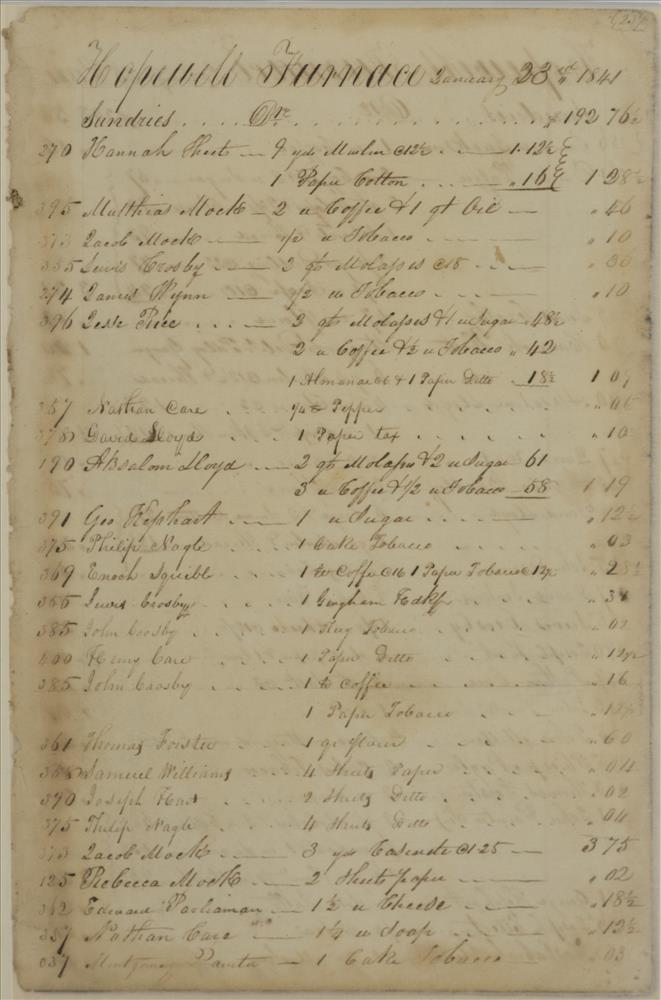 Hopewell Furnace January 23rd 1841
Sundries . . . . Drs . . . . . . . . . . . . . . $192 76½
270 Hannah Sheets — 9 yds Muslin @12½ . . — 1.12½
1 Paper Cotton . . . — „16 1 28½
395 Matthias Mock — 2 " Coffee & 1 qt Oil — „46
373 Jacob Mock — ½ " Tobacco . — — . „10
355 Lewis Crosby — 2 qts Molasses @18 . . . „36
274 James Wynn — ½ " Tobacco . — — . „10
396 Jesse Rice . . . . — 3 qts Molasses & 1 " Sugar „48½
2 " Coffee & ½ " Tobacco „ 42
1 Almanac @6 & 1 Paper Ditto „18½ 1 09
357 Nathan Care . . — ¼ " Pepper . . . . . „06
378 David Lloyd . . . 1 Paper tax . . . . . „10
190 Absalom Lloyd . — 2 qts Molasses & 2 " Sugar 61
3 " Coffee & ½ " Tobacco „58 1 19
391 Geo Kephart . — 1 " Sugar . . . . — „12½
375 Philip Nagle . . — 1 Cake Tobacco . . . . „03
369 Enoch Squibble . . . 1 lb Coffee @16 1 Paper Tobacco @12½ . „28½
355 Lewis Crosby . . . . 1 Gingham Hdkf . . . . „34
385 John Crosby . . . . 1 Tobacco . . . . „02
400 Henry Care . . . . 1 Paper Ditto . . . . „12½
385 John Crosby . . . . 1 lb Coffee . . . . „16
1 Paper Tobacco . . . . „12½
361 Thomas Forster . . . . 1 qr flour . . . . „60
358 Samuel Williams . . 4 Sheets Paper . . . . „04
390 Joseph Hart . . . . 2 Sheets Ditto . . . . „02
375 Philip Nagle . . . . 4 Sheets Ditto . . . . „04
373 Jacob Mock . . — 3 yds Casinett @1.25 — 3 75
125 Rebecca Mock — 2 Sheets paper . . — „02
342 Edward Parliaman — 1½ " Cheese — . — „18½
357 Nathan Care — 1¼ " Soap . . — „12½
037 Montgomery Painter — 1 Cake Tobacco — „03